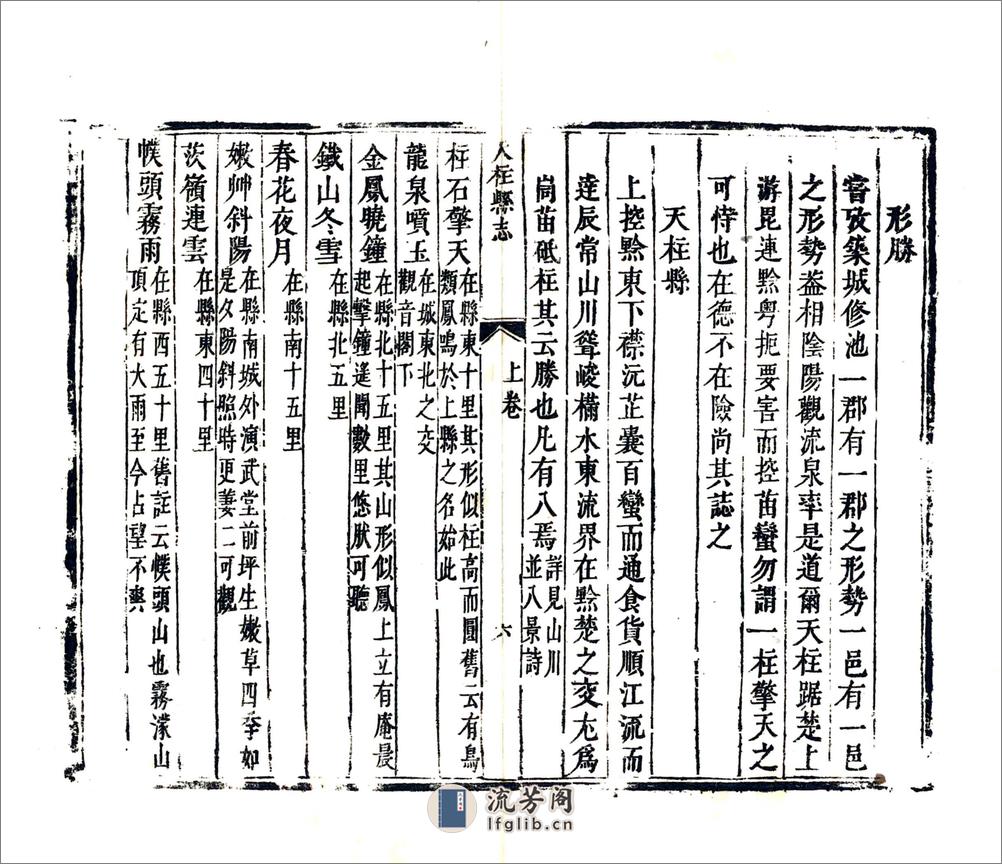 形勝
嘗攷築城修池一郡有一郡之形勢一邑有一邑
之形勢葢相陰陽觀流泉率是道爾天柱踞楚上
游毘連黔粵扼要害而控苗蠻勿謂一柱擎天之
可恃也在德不在險尚其誌之
天柱縣
上控黔東下襟沅芷囊百蠻而通食貨順江流而
達辰常山川聳峻橋水東流界在黔楚之交尤爲
峝苗砥柱其云勝也凡有八焉詳見山川
並八景詩
天柱縣志
上卷
六
柱石擎天在縣東十里其形似柱高而圓舊云有鳥
類鳳鳴於上縣之名始此
龍泉噴玉在城東北之交
觀音閣下
金鳳曉鐘在縣北十五里其山形似鳳上立有庵晨
起擊鐘遙聞數里悠肰可聽
鐵山冬雪在縣北五里
春花夜月在縣南十五里
嫩艸斜陽在縣南城外演武堂前坪生嫩草四季如
是夕陽斜照時更萋二可觀
茨嶺連雲在縣東四十里
幞頭霧雨在縣西五十里舊註云幞頭山也霧濛山
頂定有大雨至今占望不爽
流芳阁
lfglib.cn